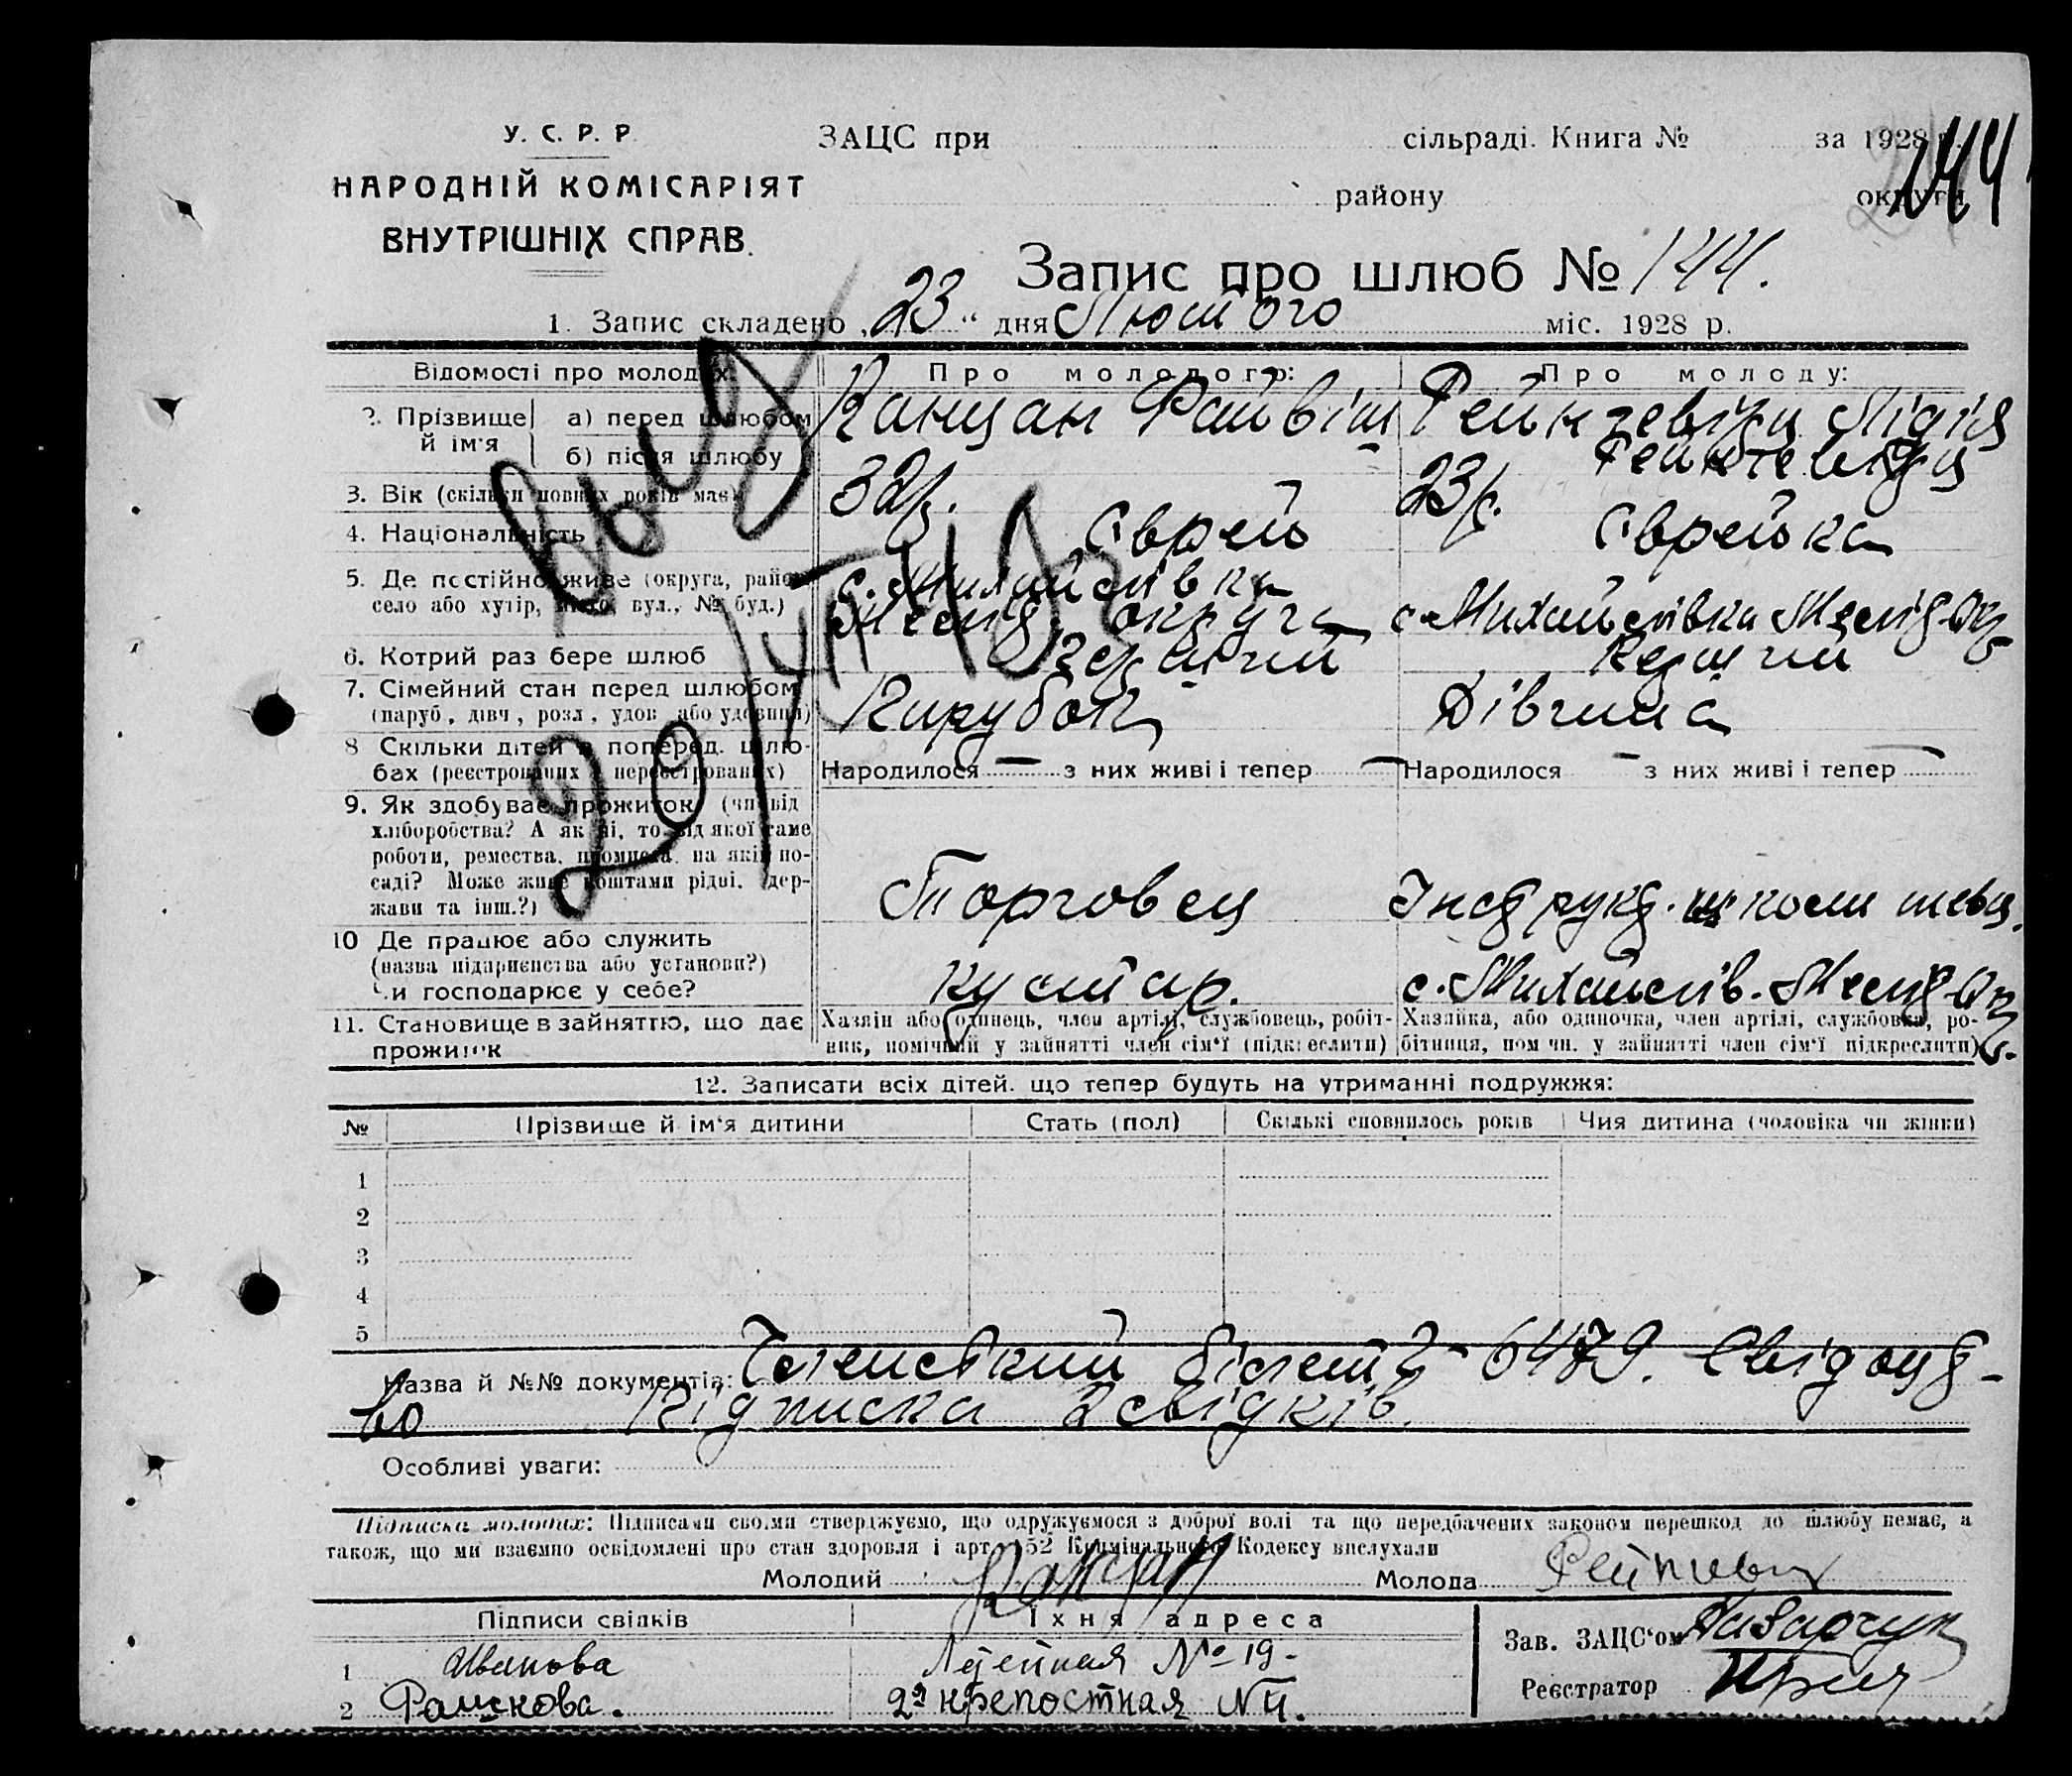 У. С. Р. Р.
НАРОДНІЙ КОМІСАРІЯТ
ВНУТРІШНІХ СПРАВ.
ЗАЦС при сільраді. Книга № за 1928 р.
району округи
144
Запис про шлюб № 144.
1. Запис складено „23“ дня Лютого міс. 1928 р.
Відомості про молодих: Про молодого: Про молоду:
2. Прізвище й ім'я
а) перед шлюбом Канцан Файвіш Лідія
б) після шлюбу
3. Вік (скільки повних років має) 32 р. 23 р.
4. Національність Єврей Єврейка
5. Де постійно живе (округа, район
село або хутір, місто, вул., № буд.)
с. Михайлівка
Меліт. округа с. Михайлівка Меліт. Окр.
6. Котрий раз бере шлюб Перший Перший
7. Сімейний стан перед шлюбом
(паруб., дівч., розл., удов. або удовиця) Парубок Дівчина
8 Скільки дітей в поперед. шлю-
бах (реєстрованих й нереєстрованих)
Народилося — з них живі і тепер — Народилося — з них живі і тепер —
9. Як здобуває прожиток (чи від
хліборобства? А як ні, то від якої саме
роботи, ремества, промисла, на якій по-
саді? Може живе коштами рідні, дер-
жави та інш.?)
Торговец Інструкт. школи швец.
10 Де працює або служить
(назва підприємства або установи?)
Чи господарює у себе?
кустар. с. Михайлів. Меліт. Окр.
11. Становище в зайняттю, що дає
прожиток
Хазяїн або одинець, член артілі, службовець, робіт-
ник, помічний у зайнятті член сім'ї (підкреслити)
Хазяйка, або одиночка, член артілі, службовка, ро-
бітниця, пом чн. у зайнятті член сім'ї підкреслити)
12. Записати всіх дітей, що тепер будуть на утриманні подружжя:
№ Прізвище й ім'я дитини Стать (пол) Скількі сповнилось років Чия дитина (чоловіка чи жінки)
1
2
3
4
5
Назва й №№ документів: Членський білет 6479. Свідоцт-
во Підписка 2 свідків.
Особливі уваги:
Підписка молодих: Підписами своїми стверджуємо, що одружуємося з доброї волі та що передбачених законом перешкод до шлюбу немає, а
також, що ми взаємно освідомлені про стан здоровля і арт. 152 Кримінального Кодексу вислухали
Молодий Канцан Молода
Підписи свідків Їхня адреса
1 Иванова Литейная № 19.
2 Рашкова. 2я крепостная №
Зав. ЗАЦС'ом
Реєстратор